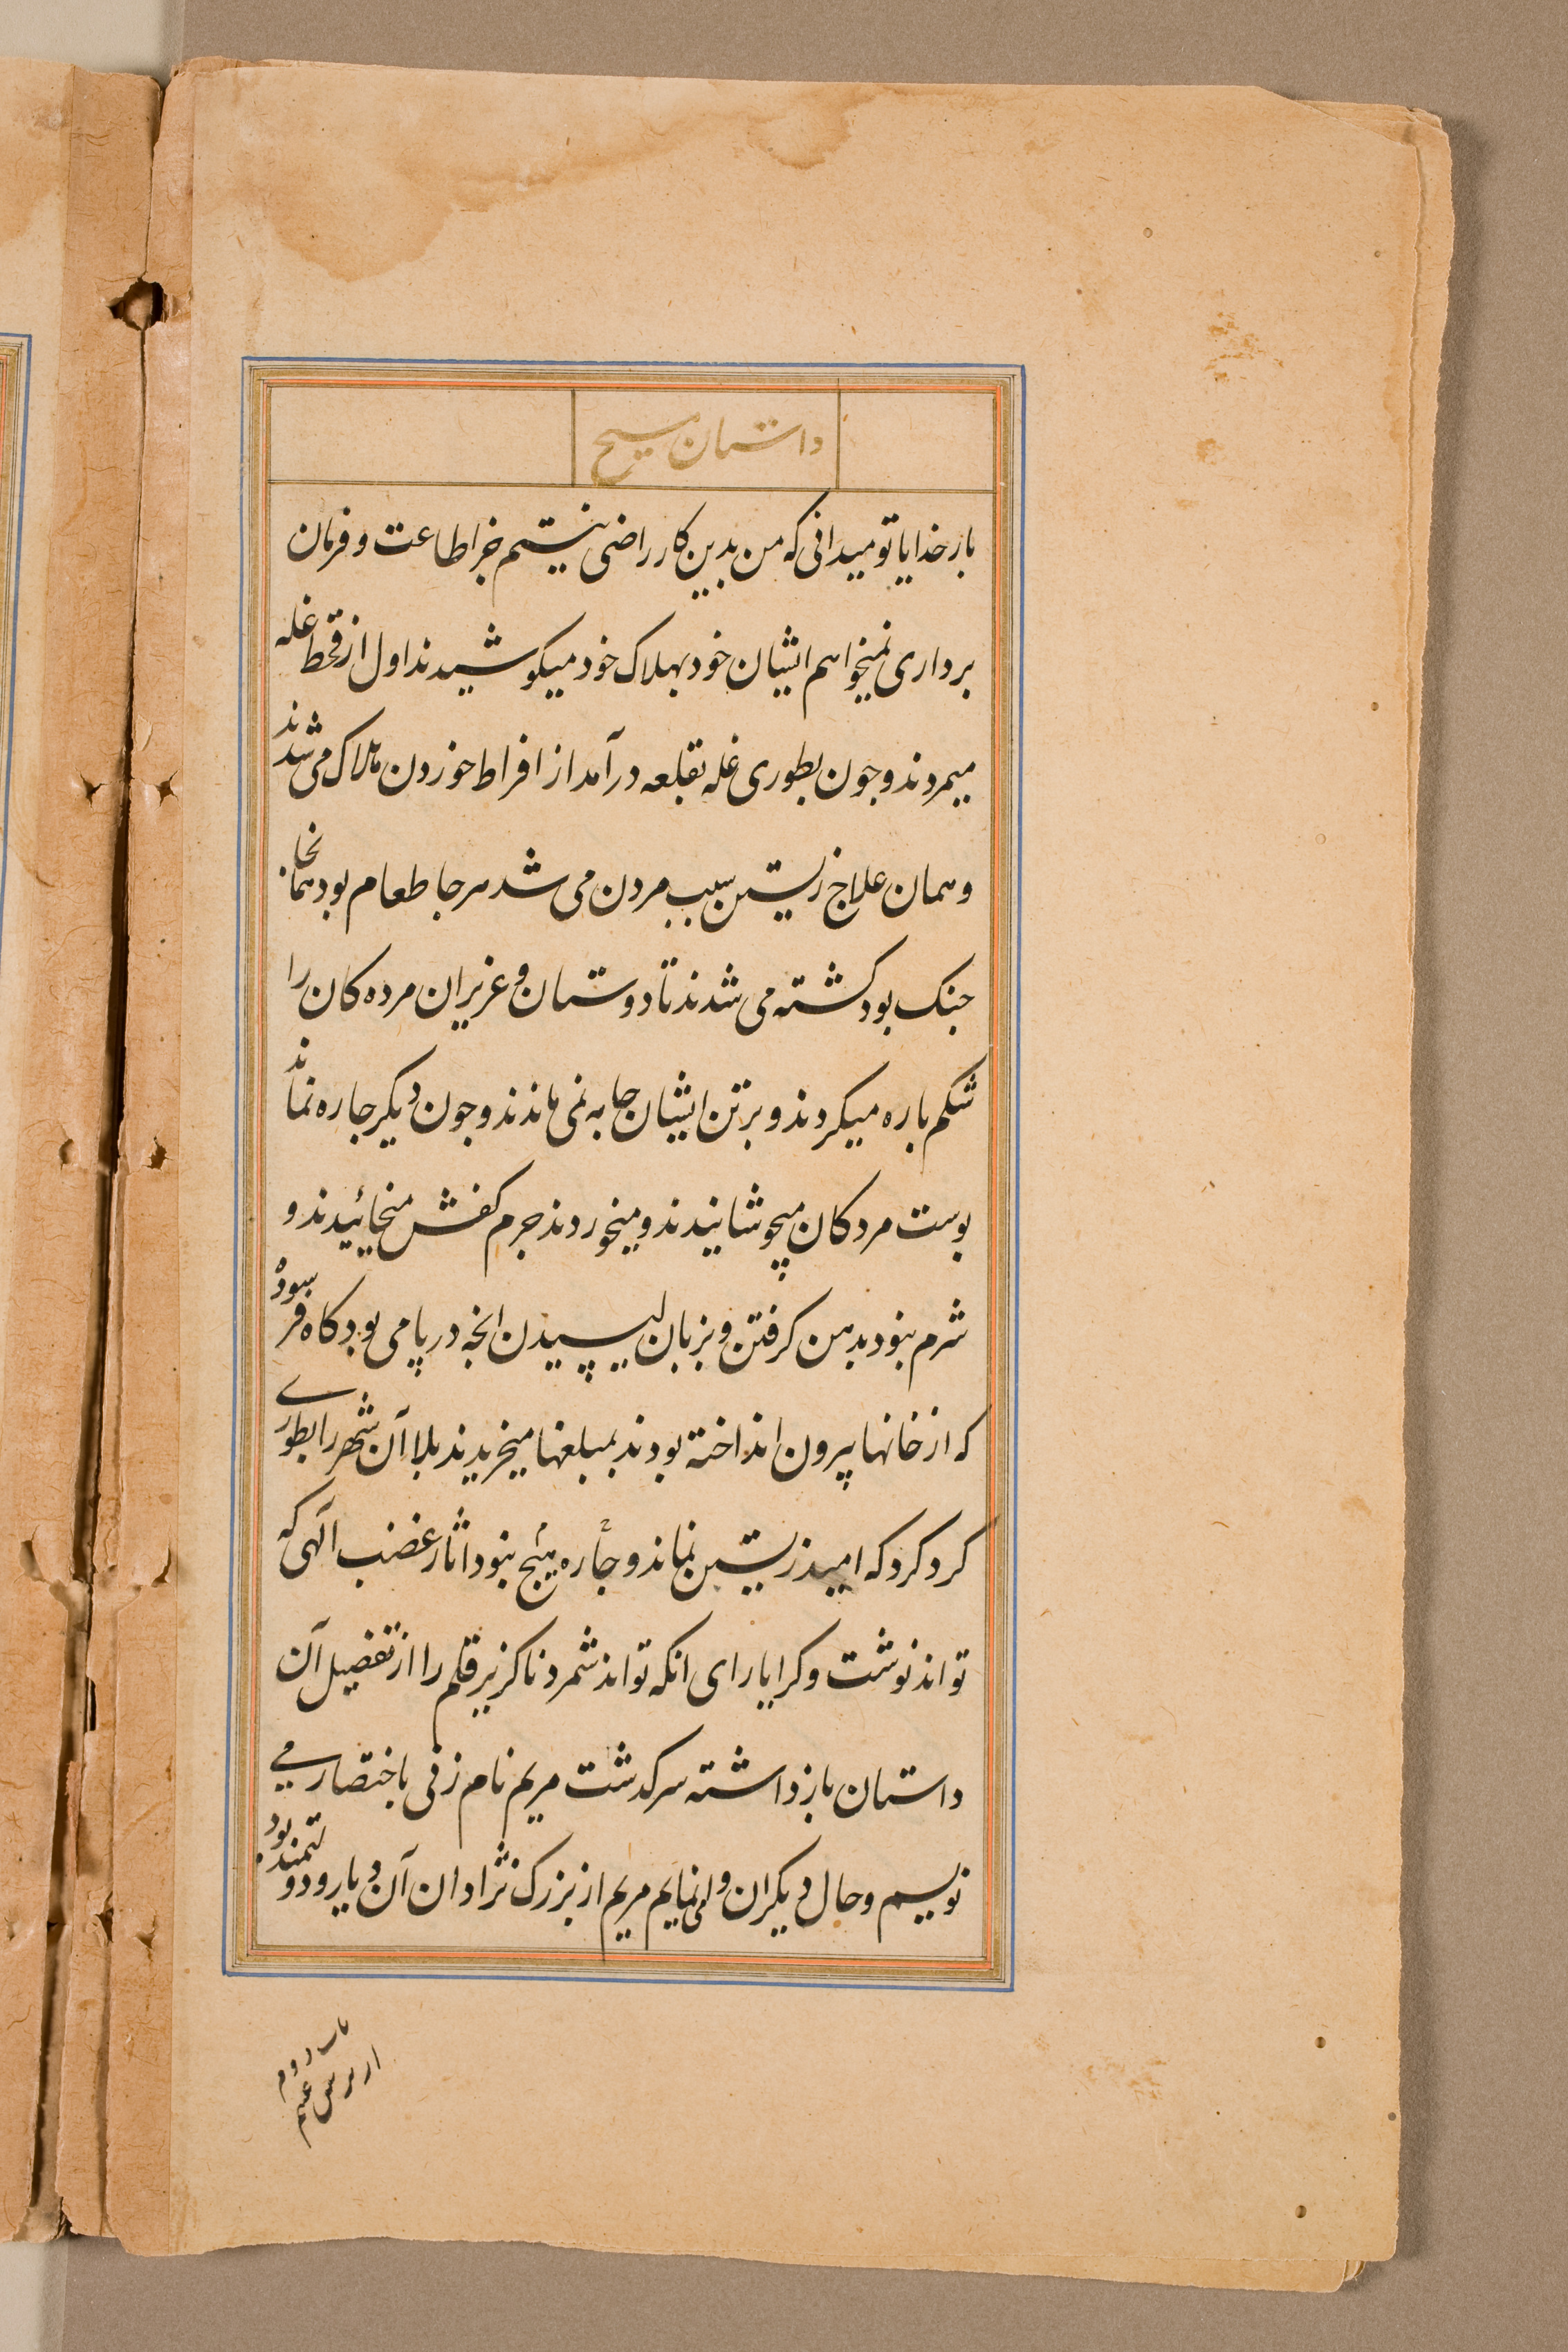 داستان مسیح
بار خدایا تو میدانی که من بدین کار راضی نیستم جز اطاعت و فرمان
برداری نمیخواهم ایشان خود بهلاک خود میکوشیدند اول از قحط غله
میمردند و چون بطوری غله بقلعه درآمد از افراط خوردن هلاک می شدند
و همان علاج زیستن سبب مردن می شد هر جا طعام بود همانجا
جنک بود کشته می شدند تا دوستان و عزیزان مرده کان را
شکم پاره میکردند و بر تن ایشان جامه نمی ماندند و چون دیکر چاره نماند
پوست مردکان میجوشانیدند و میخوردند جرم کفش میخائیدند و
شرم نبود بدهن کرفتن و بزبان لیسیدن انچه در پا می بود کاه فرسوده
که از خانها بیرون انداخته بودند بمبلغها میخریدند بلا آن شهر را بطوری
کرد کرد که امید زیستن نماند و چاره هیچ نبود اثار غضب الهی که
تواند نوشت و کرا یارای انکه تواند شمرد ناکزیر قلم را از تفصیل آن
داستان باز داشته سرکذشت مریم نام زنی باختصار می
نویسم و حال دیکران وا می نمایم مریم از بزرک نژادان آن دیار و دولتمند بود